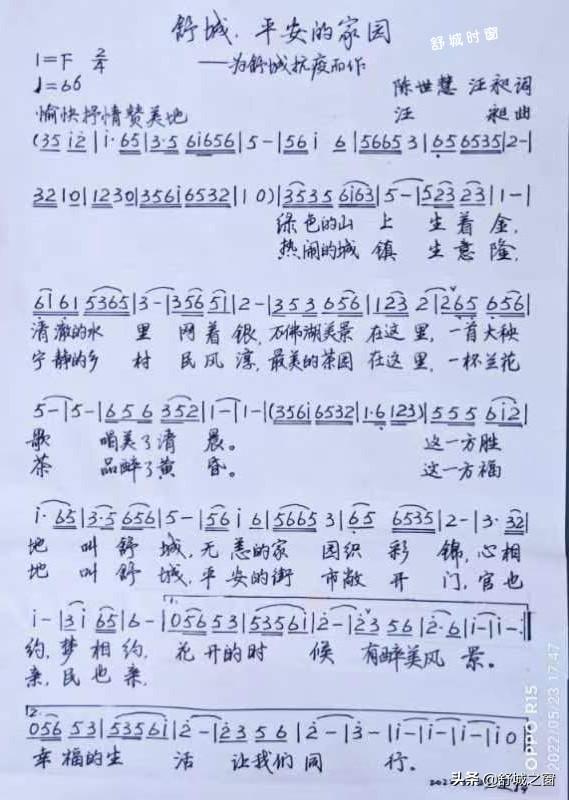 舒城，平安的家园
舒城时窗
——为舒城抗疫而作
1=下 2/4
♩=66
陈世慧 汪昶词
愉快抒情赞美地
汪 昶曲
(35 i2 | i· 65 | 3·5 6i656 | 5 - | 56 i 6 | 5665 3 | 65 6535 | 2 - |
32 1 0 | 123 0 | 356i 6532 | 1 0) | 3535 6i63 | 5 - | 523 23 | 1 - |
绿色的山 上 生 着 金，
热闹的城 镇 生 意 隆，
6i 61 5365 | 3 - | 356 5i | 2 - | 353 656 | 123 2 | 265 656 |
清澈的水 里 网 着 银，万佛湖美景 在这 里，一首大秧
宁静的乡 村 民 风 淳，最美的茶园 在这 里，一杯兰花
5 - | 5 - | 656 352 | 1 - | 1 - | (356i 6532 | 1·6 123) | 555 6i2 |
歌 唱美了清 晨。 这一方胜
茶 品醉了黄 昏。 这一方福
i· 65 | 3·5 656 | 5 - | 56 i 6 | 5665 3 | 65 6535 | 2 - | 3· 32 |
地 叫 舒 城，无 恙的家 园织 彩 锦，心相
地 叫 舒 城，平 安的街 市敞 开 门，官也
i - | 3 i 65 | 6 - | 1. 056 53 | 5356i | 2 - | 23 56 | 2·6 | i - | i - :‖
约，梦 相 约， 花 开的时 候 有醉美风 景。
亲，民 也 亲，
2. 056 53 | 5356i | 2 - | 23 56 | 2 - | 3 - | i - | i - | i - | i 0 ‖
幸 福的生 活 让我们同 行。
OPPO R15
2022/05/23 17:47
头条 @舒城之窗